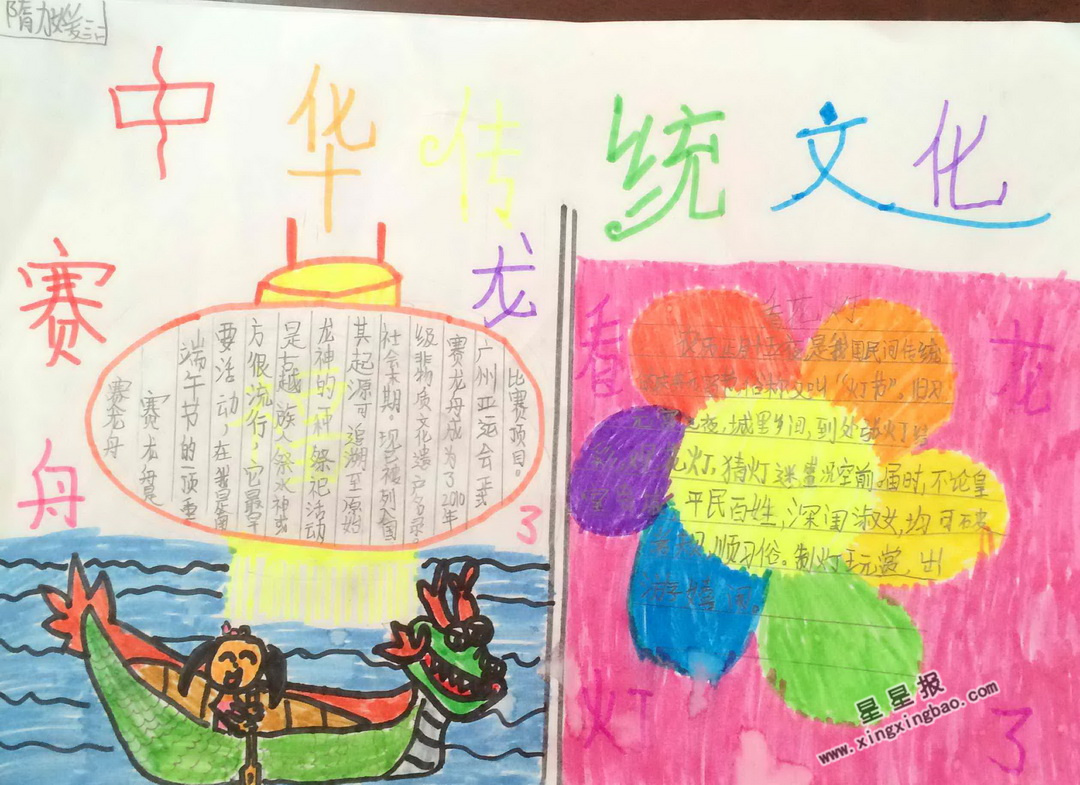 中华传统文化
赛龙舟了
赛龙舟
赛龙舟是
端午节的一项重
要活动,在我国南
方很流行,它最早
是古越族人祭水神或
龙神的一种祭祀活动
其起源可追溯至原始
社会末期。现已被列入国
级非物质文化遗产名录。
赛龙舟成为了2010年
广州亚运会正式
比赛项目。
看花灯了
看花灯
夜,是我国民间传统
又叫"灯节"。
夜,城里乡间,到处
灯,猜灯迷 空前届时,不论皇
平民百姓,深闺淑女,均可破
顺习俗。制灯玩赏,出
星星报
www.xingxingbao.com